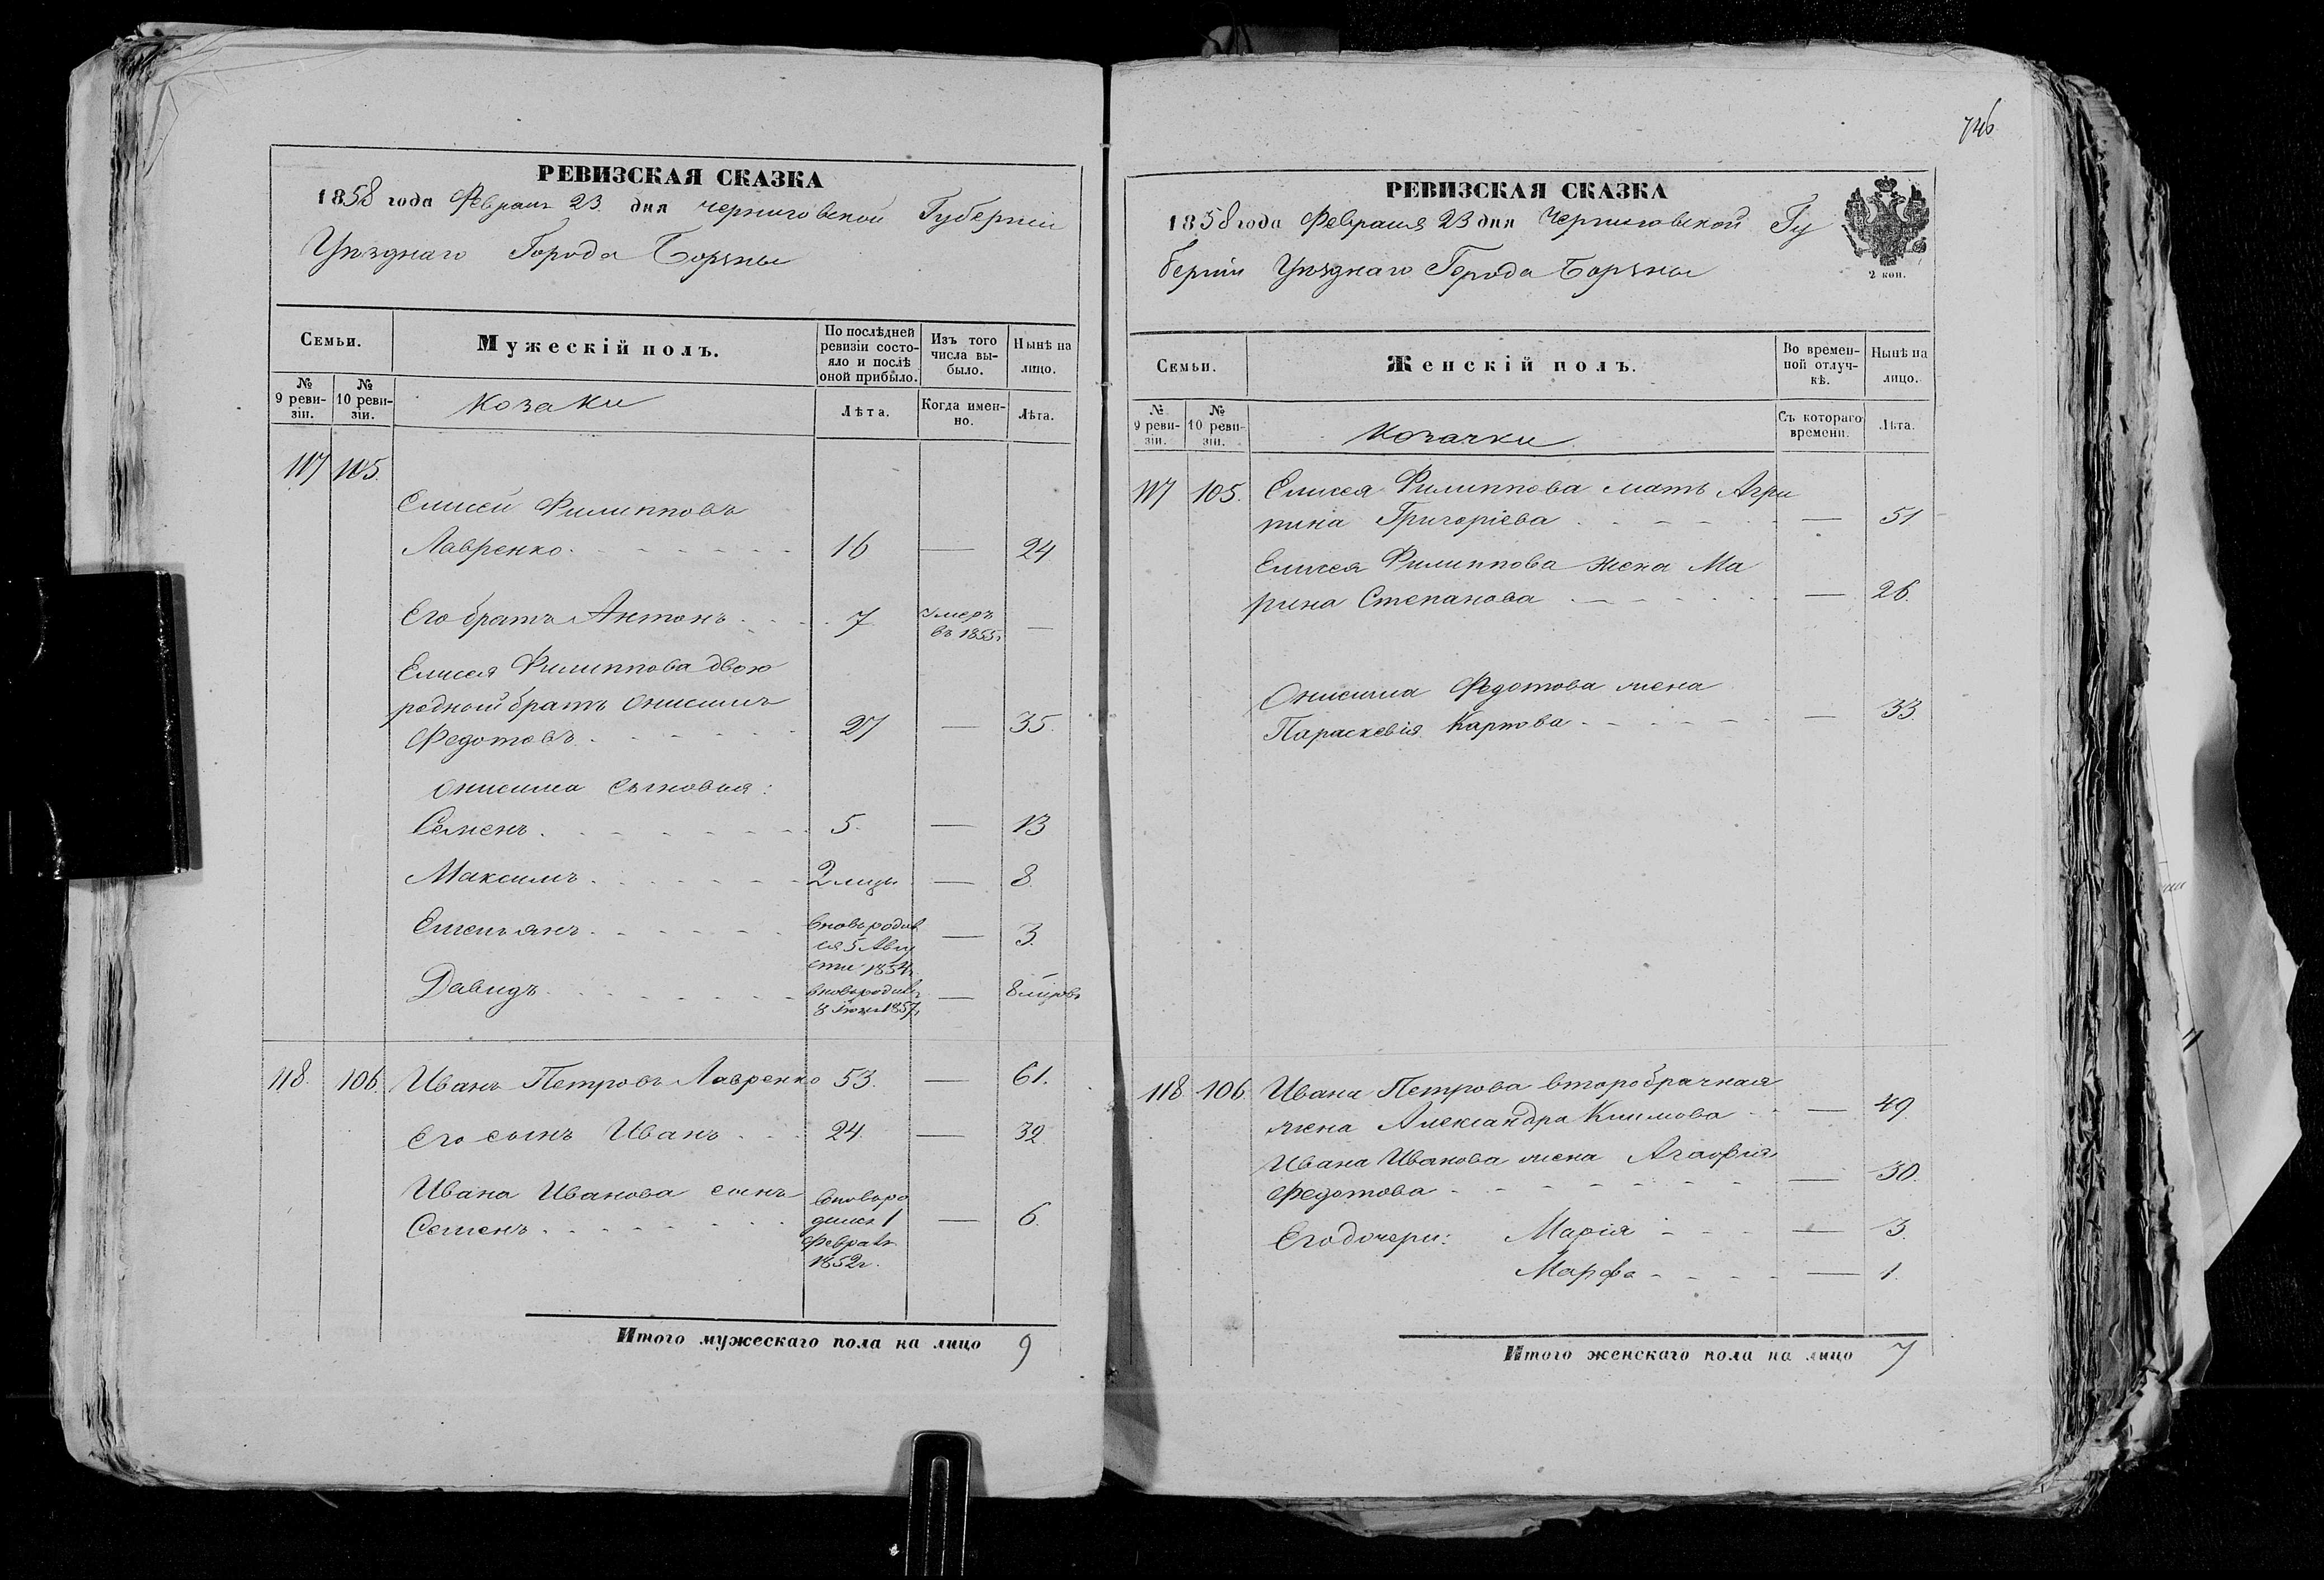 746
РЕВИЗСКАЯ СКАЗКА
1858 года Февраля 23 дня Черниговской Губерніи
Уѣзднаго Города Борзны
Семьи.
Мужескій полъ.
По послѣдней ревизіи состояло и послѣ оной прибыло.
Изъ того числа выбыло.
Нынѣ на лицо.
№ 9 ревизіи.
№ 10 ревизіи.
Козаки
Лѣта.
Когда именно.
Лѣта.
117 105.
Елисей Филипповъ
Лавренко 16 — 24
Его братъ Антонъ 7 умеръ въ 1855г —
Елисея Филиппова двою
родный братъ Онисимъ
Федотовъ 27 — 35.
Онисима сыновья:
Семенъ 5 — 13
Максимъ 2 мцы — 8
Емельянъ вновь родив ся 5 Авгу ста 1854г — 3.
Давидъ 8 1857г — 8 мцовъ
118. 106. Иванъ Петровъ Лавренко 53. — 61.
Его сынъ Иванъ 24 — 32
Ивана Иванова сынъ
Семенъ вновь ро дился 1 Февраля 1852г. — 6.
Итого мужескаго пола на лицо 9
РЕВИЗСКАЯ СКАЗКА
1858 года Февраля 23 дня Черниговской Гу
берніи Уѣзднаго Города Борзны
2 коп.
Семьи.
Женскій полъ.
Во временной отлучкѣ.
Нынѣ на лицо.
№ 9 ревизіи.
№ 10 ревизіи.
Козачки
Съ котораго времени.
Лѣта.
117 105. Елисея Филиппова мать Агри
пина Григоріева — 51
Елисея Филиппова жена Ма
рина Степанова — 26.
Онисима Федотова жена
Параскевія Карпова — 33.
118 106 Ивана Петрова второбрачная
жена Александра Климова — 49
Ивана Иванова жена Агафія
Федотова — 30.
Его дочери: Марія — 3.
Марфа — 1.
Итого женскаго пола на лицо 7